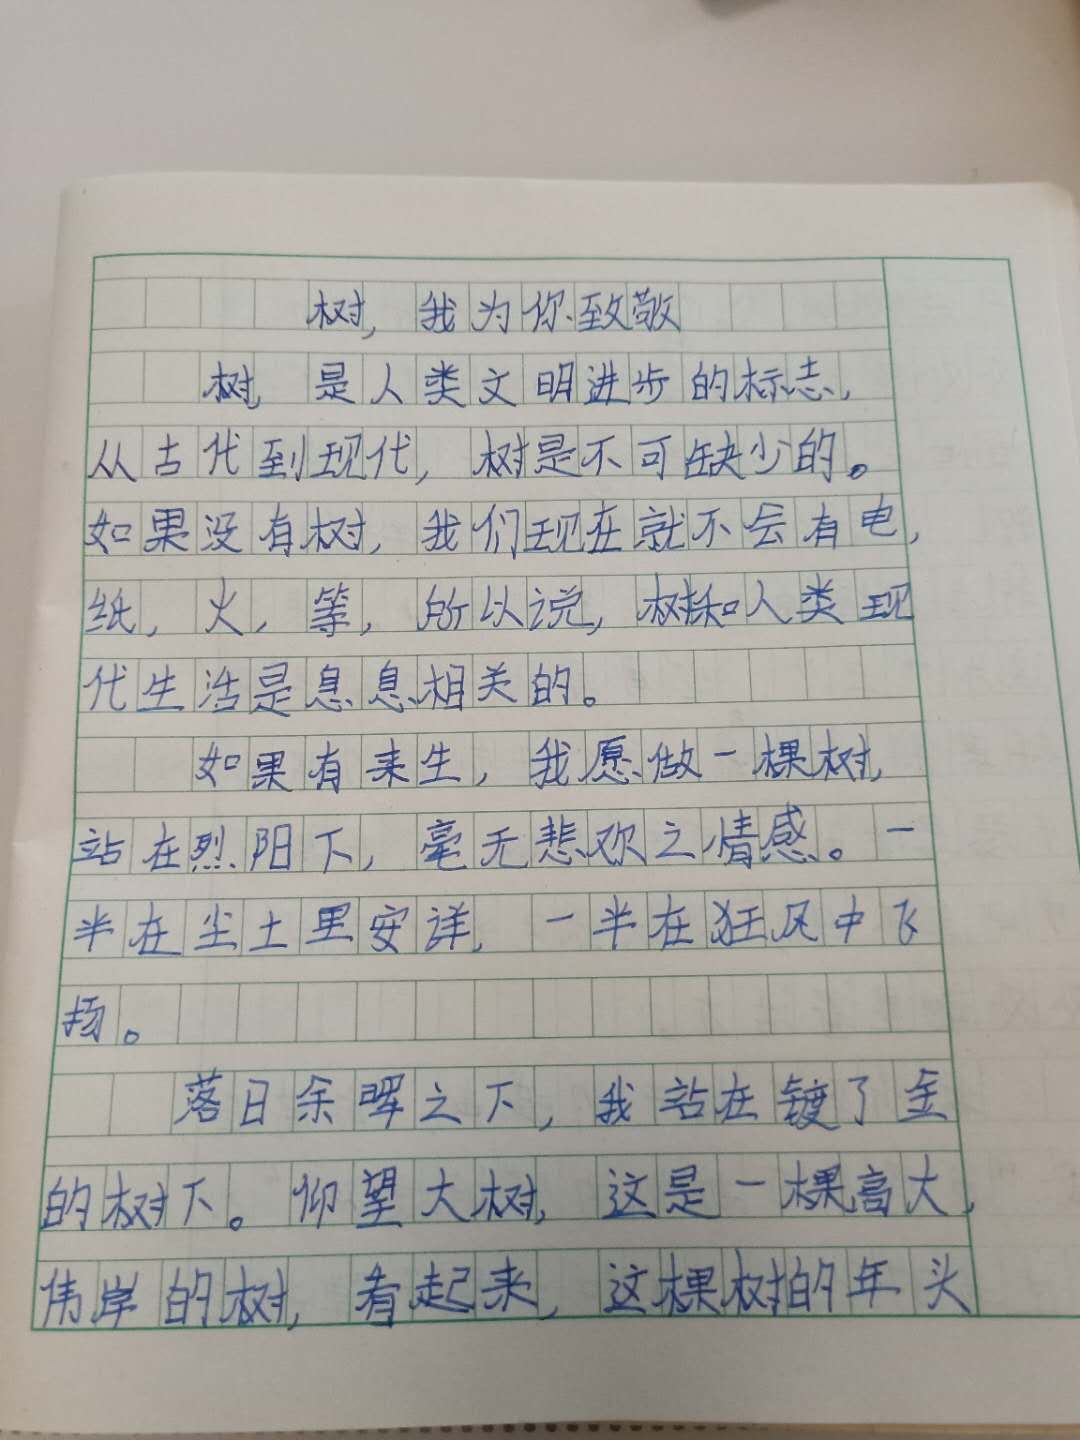 树，我为你致敬
树，是人类文明进步的标志，
从古代到现代，树是不可缺少的。
如果没有树，我们现在就不会有电，
纸，火，等，所以说，树和人类现
代生活是息息相关的。
如果有来生，我愿做一棵树，
站在烈阳下，毫无悲欢之情感。一
半在尘土里安详，一半在狂风中飞
扬。
落日余晖之下，我站在镀了金
的树下。仰望大树，这是一棵高大，
伟岸的树，看起来，这棵树的年头